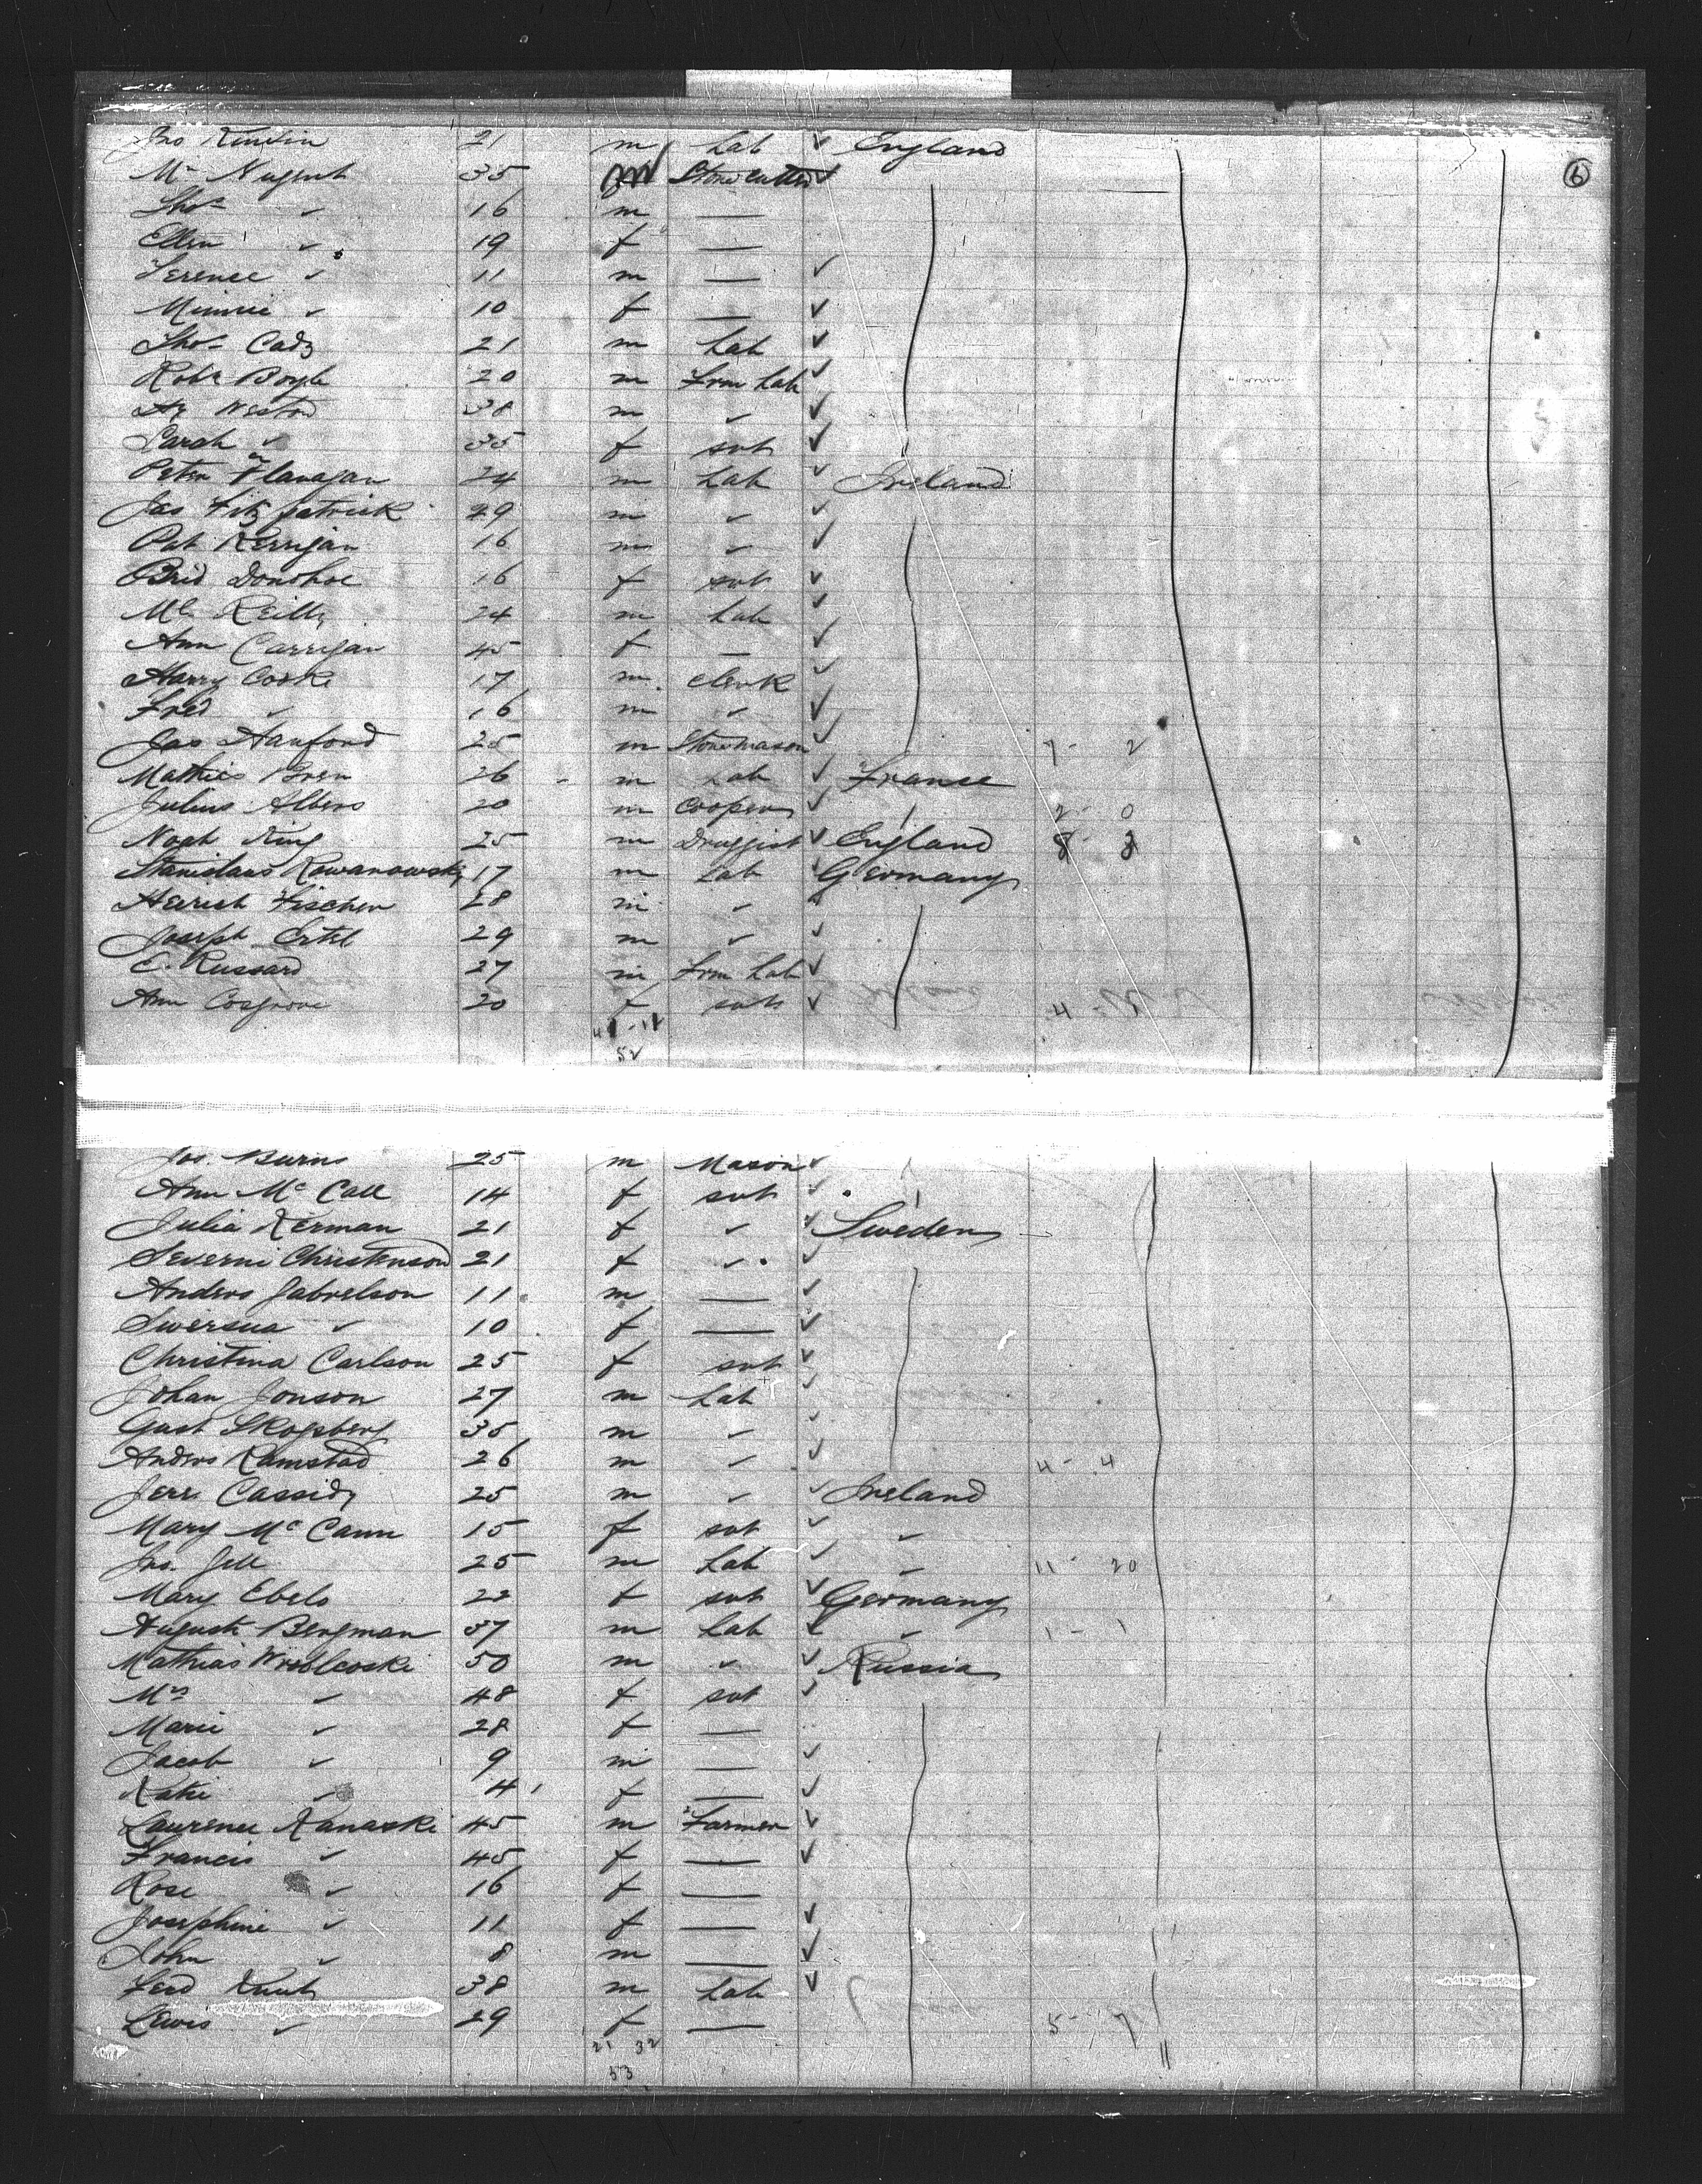 Jno 21 m Lab ✓ England
Mr Nugent 35 m Stonecutter ✓ 6
Thos ✓ 16 m —
Ellen ✓ 19 f —
Terence ✓ 11 m — ✓
Minnie ✓ 10 f — ✓
Thos Cady 21 m Lab ✓
Robt Boyle 20 m Frm Lab ✓
Hy Weston 38 m ✓ ✓
Sarah ✓ 35 f svt ✓
Peter Flanagan 24 m Lab ✓ Ireland
Jas Fitzpatrick 29 m ✓ ✓
Pat Kerrigan 16 m ✓ ✓
Brid Donohoe 16 f svt ✓
Ml Reilly 24 m Lab ✓
Ann Carrigan 45 f — ✓
Harry Cooke 17 m. Clerk ✓
Fred ✓ 16 m ✓ ✓
Jas Hanford 25 m Stonemason ✓ 7 - 2
Mathies 26 m Lab ✓ France
Julius Albers 20 m Cooper ✓ 2 - 0
Noah King 25 m Druggist ✓ England 8 - 2
Stanislaus Rowanowsky 17 m Lab ✓ Germany
Heirich Fischer 28 m ✓
Joseph Ertel 29 m ✓ ✓
E. Russard 27 m Frm Lab ✓
Ann Cosgrove 20 f svt ✓ 4 -
52
Jos. Burns 25 m Mason ✓
Ann McCall 14 f svt ✓
Julia Kerman 21 f ✓ ✓ Sweden
Severni Christenson 21 f ✓ ✓
Anders Gabrelson 11 m — ✓
Swersua ✓ 10 f — ✓
Christina Carlson 25 f svt ✓
Johan Jonson 27 m Lab ✓
Gust Skogsberg 35 m ✓ ✓
Anders Ramstad 26 m ✓ ✓ 4 - 4
Jerr. Cassidy 25 m ✓ ✓ Ireland
Mary McCann 15 f svt ✓ ✓
Jno. Gill 25 m Lab ✓ ✓ 11 - 20
Mary Ebels 22 f svt ✓ Germany
Auguste Bergman 37 m Lab ✓ ✓ 1 - 1
Mathias Wroblcoski 50 m ✓ ✓ Russia
Mrs ✓ 48 f svt ✓
Marie ✓ 28 f —
Jacob ✓ 9 m — ✓
Katie ✓ 4 f — ✓
Laurence Kanaski 45 m Farmer ✓
Francis ✓ 45 f — ✓
Rose ✓ 16 f —
Josephine ✓ 11 f — ✓
John ✓ 8 m — ✓
Ferd 38 m Lab ✓
Lewis ✓ 29 f — 5 - 7
21 32
53